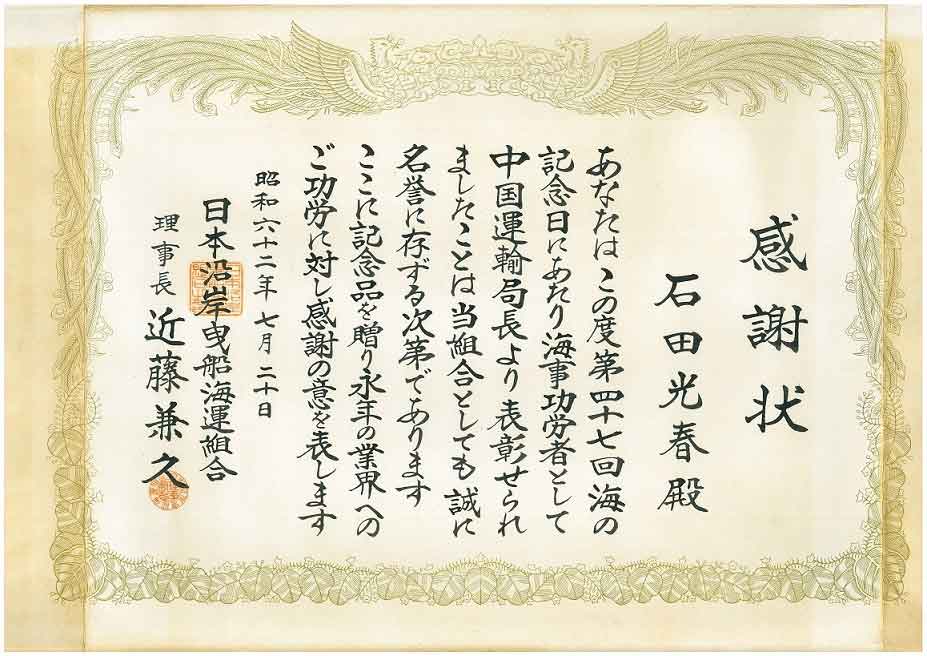 感謝状
石田光春殿
あなたはこの度第四十七回海の
記念日にあたり海事功労者として
中国運輸局長より表彰せられ
ましたことは当組合としても誠に
名誉に存ずる次第であります
ここに記念品を贈り永年の業界への
ご功労に対し感謝の意を表します
昭和六十二年七月二十日
日本沿岸曳船海運組合
理事長 近藤兼久